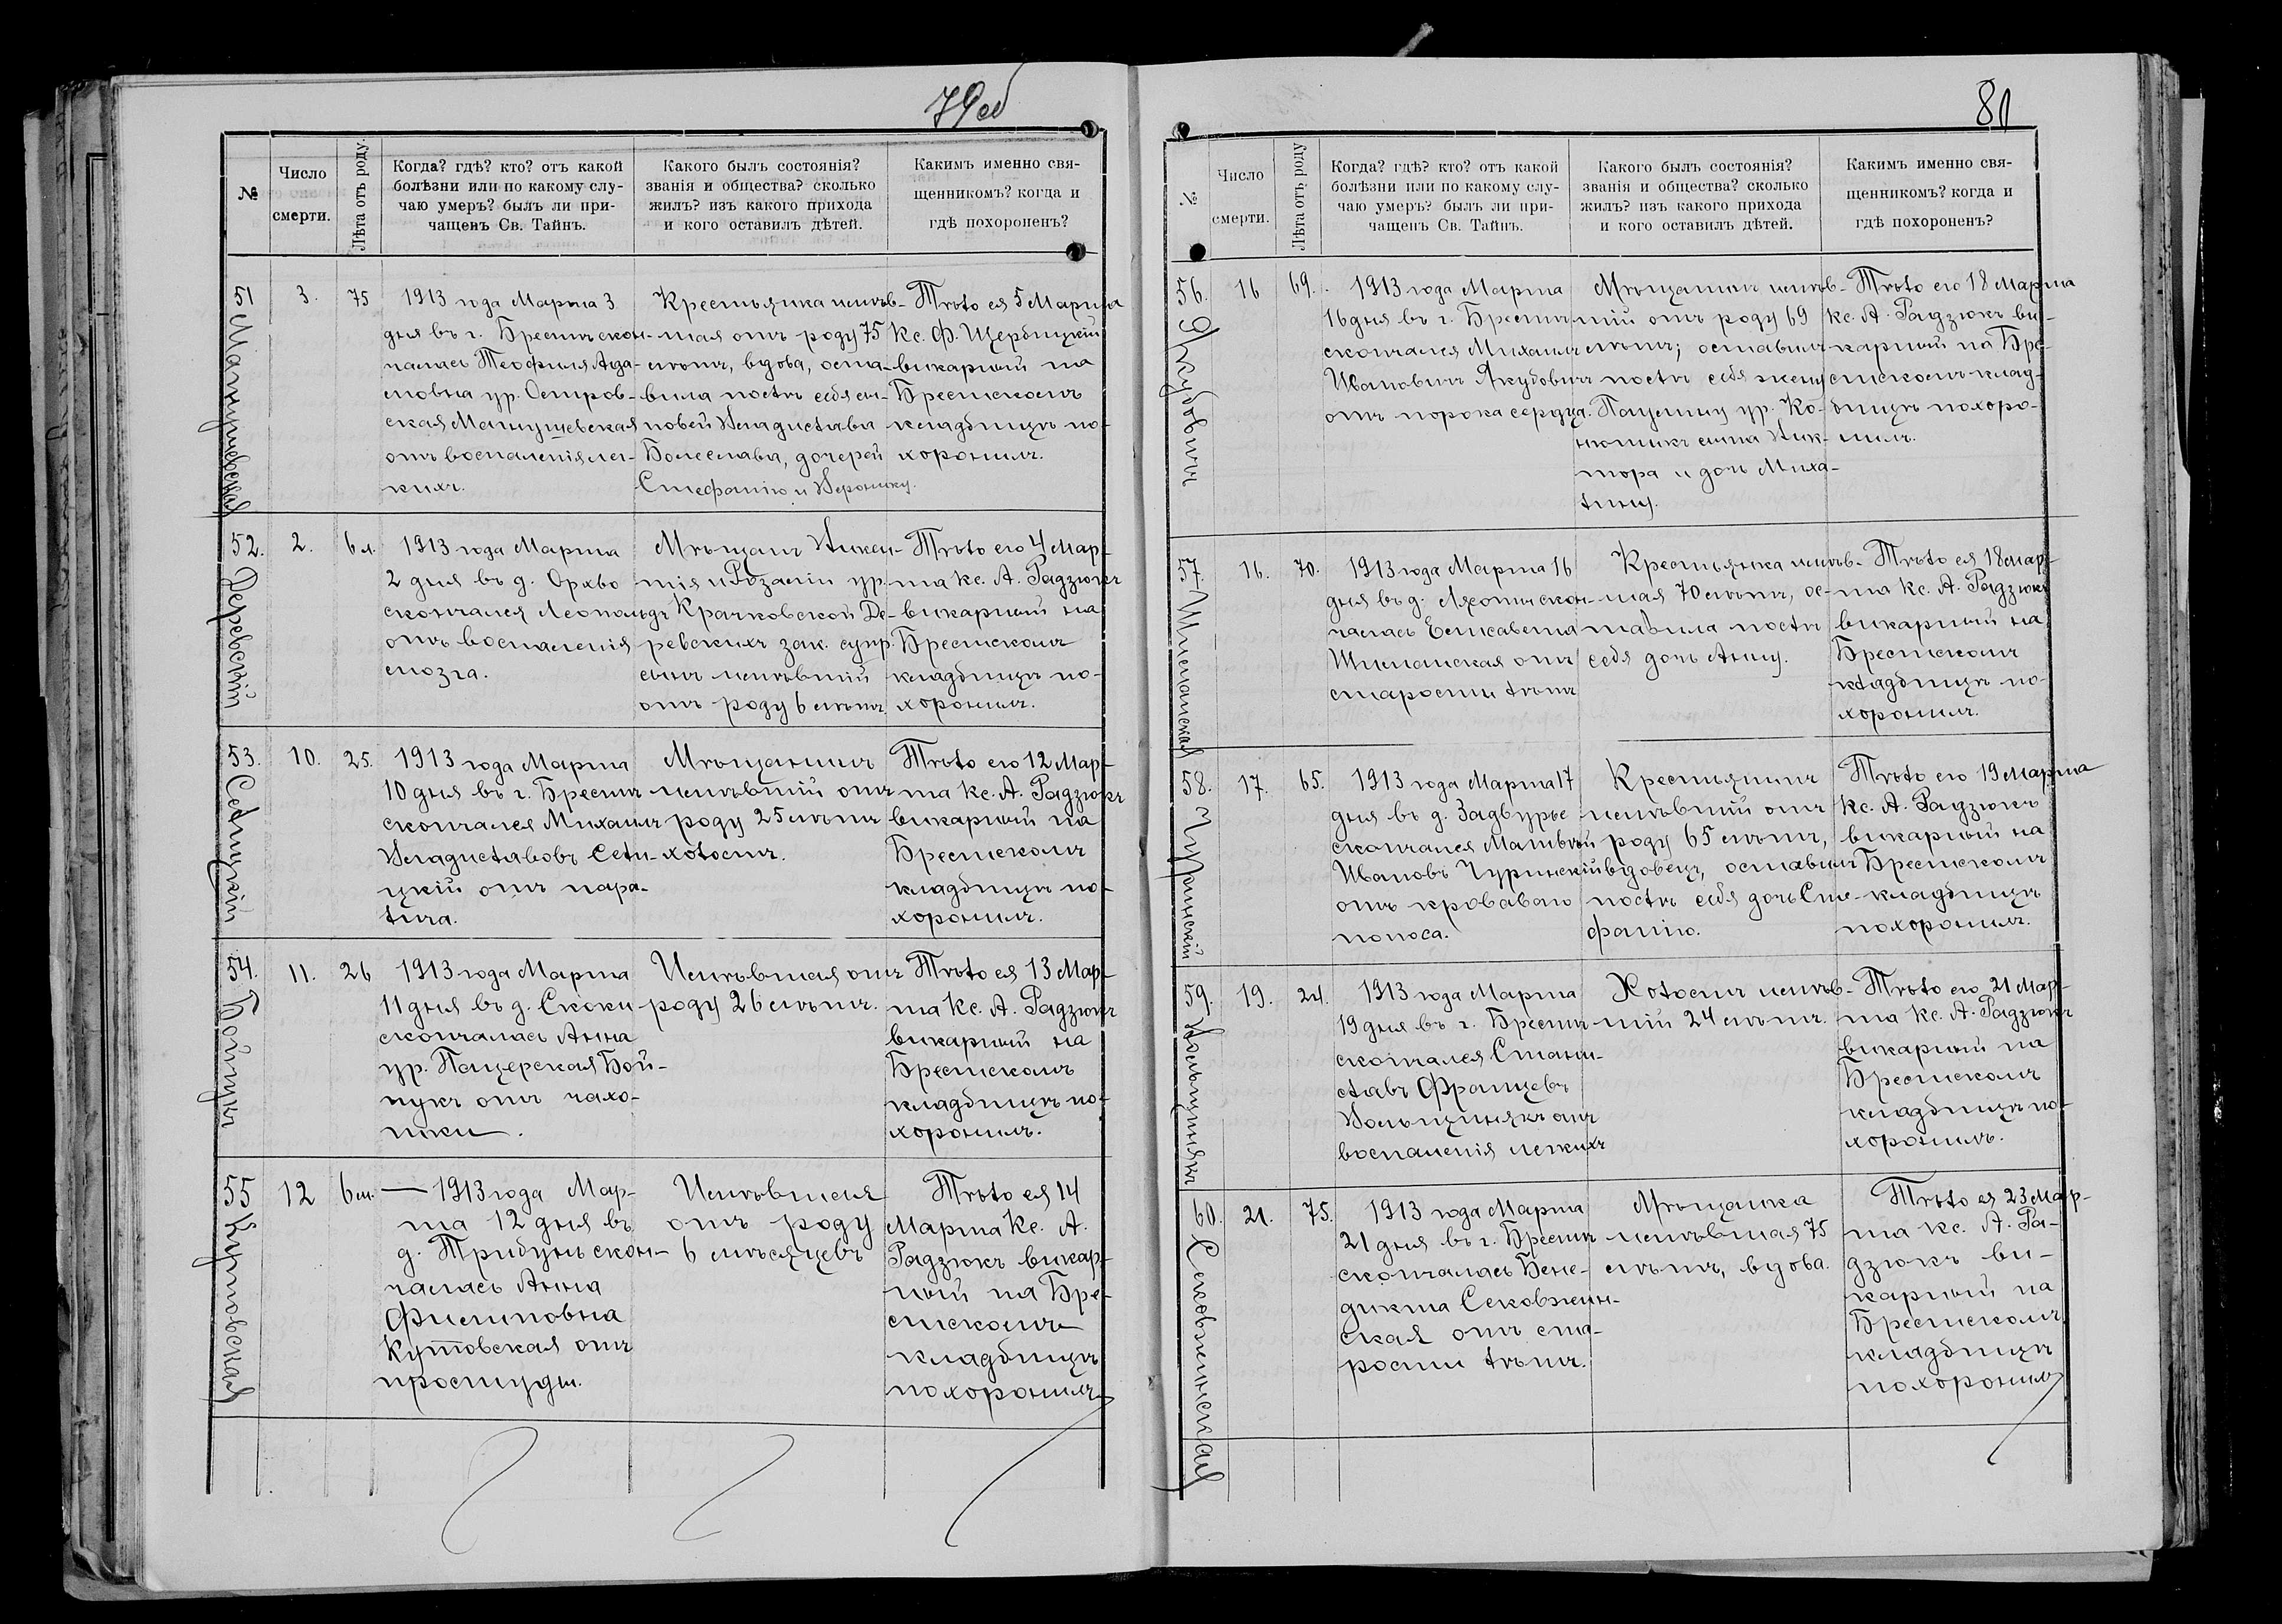 79об
№
Число
смерти.
Лѣта отъ роду.
Когда? гдѣ? кто? отъ какой
болѣзни или по какому слу-
чаю умеръ? былъ ли при-
чащенъ Св. Тайнъ.
Какого былъ состоянія?
званія и общества? сколько
жилъ? изъ какого прихода
и кого оставилъ дѣтей.
Какимъ именно свя-
щенникомъ? когда и
гдѣ похороненъ?
51
Матушевская
3.
75
1913 года Марта 3
дня въ г. Брестѣ скон-
чалась Теофиля Ада-
мовна ур. Остров-
ская Матушевская
отъ воспаленія лег-
кихъ.
Крестьянка имѣв-
шая отъ роду 75
лѣтъ, вдова, оста-
вила послѣ себя сы-
новей Владислава
Болеслава, дочерей
Стефанію и Веронику.
Тѣло ея 5 Марта
Кс. Ф. Щербицкій
викарный на
Брестскомъ
кладбищѣ по-
хоронилъ.
52.
Деревскій
2.
6 л.
1913 года Марта
2 дня въ д. Орхво
скончался Леопольдъ
отъ воспаленія
мозга.
Мѣщанъ Викен-
тія и Розаліи ур.
Крачковской Де-
ревскихъ зак. супр.
сынъ имѣвшій
отъ роду 6 лѣтъ
Тѣло его 4 Мар-
та Кс. А. Радзюкъ
викарный на
Брестскомъ
кладбищѣ по-
хоронилъ.
53.
Селицкій
10.
25.
1913 года Марта
10 дня въ г. Брестѣ
скончался Михаилъ
Владиславовъ Сели-
цкій отъ пара-
лича.
Мѣщанинъ
имѣвшій отъ
роду 25 лѣтъ
холостъ.
Тѣло его 12 Мар-
та Кс. А. Радзюкъ
викарный на
Брестскомъ
кладбищѣ по-
хоронилъ.
54.
Бойчукъ
11.
26
1913 года Марта
11 дня въ д. Скоки
скончалась Анна
ур. Пацерская Бой-
чукъ отъ чахо-
тки.
Имѣвшая отъ
роду 26 лѣтъ.
Тѣло ея 13 Мар-
та Кс. А. Радзюкъ
викарный на
Брестскомъ
кладбищѣ по-
хоронилъ.
55
Кутовская
12
6 м.
1913 года Мар-
та 12 дня въ
д. Тришунь скон-
чалась Анна
Филиповна
Кутовская отъ
простуды.
Имѣвшая
отъ роду
6 мѣсяцевъ
Тѣло ея 14
Марта Кс. А.
Радзюкъ викар-
ный на Бре-
стскомъ
кладбищѣ
похоронилъ
80
№
Число
смерти.
Лѣта отъ роду
Когда? гдѣ? кто? отъ какой
болѣзни или по какому слу-
чаю умеръ? былъ ли при-
чащенъ Св. Тайнъ.
Какого былъ состоянія?
званія и общества? сколько
жилъ? изъ какого прихода
и кого оставилъ дѣтей.
Какимъ именно свя-
щенникомъ? когда и
гдѣ похороненъ?
56.
Якубовичъ
16
69.
1913 года Марта
16 дня въ г. Брестѣ
скончался Михаилъ
Ивановичъ Якубовичъ
отъ порока сердца.
Мѣщанинъ имѣв-
шій отъ роду 69
лѣтъ; оставилъ
послѣ себя жену
Паулину ур. Ко-
нюшикъ сына Вик-
тора и дочь Миха-
лину.
Тѣло его 18 Марта
кс. А. Радзюкъ ви-
карный на Бре-
стскомъ клад-
бищѣ похоро-
нилъ.
57.
Шиманская
16.
70.
1913 года Марта 16
дня въ д. Ляхоты скон-
чалась Елисавета
Шиманская отъ
старости лѣтъ
Крестьянка имѣв-
шая 70 лѣтъ, ос-
тавила послѣ
себя дочь Анну.
Тѣло ея 18 мар-
та Кс. А. Радзюкъ
викарный на
Брестскомъ
кладбищѣ по-
хоронилъ.
58.
Чуринскій
17.
65.
1913 года Марта 17
дня въ д. Задвурье
скончался Матвѣй
Ивановъ Чуринскій
отъ кроваваго
поноса.
Крестьянинъ
имѣвшій отъ
роду 65 лѣтъ,
вдовецъ, оставилъ
послѣ себя дочь Сте-
фанію.
Тѣло его 19 Марта
Кс. А. Радзюкъ
викарный на
Брестскомъ
кладбищѣ
похоронилъ.
59.
Вольциньякъ
19.
24.
1913 года Марта
19 дня въ г. Брестѣ
скончался Стани-
славъ Францевъ
Вольцинякъ отъ
воспаленія легкихъ
Холостъ имѣв-
шій 24 лѣтъ.
Тѣло его 21 Мар-
та Кс. А. Радзюкъ
викарный на
Брестскомъ
кладбищѣ по-
хоронилъ.
60.
Сековженская
21.
75.
1913 года Марта
21 дня въ г. Брестѣ
скончалась Бене-
дикта Сековжен-
ская отъ ста-
рости лѣтъ.
Мѣщанка
имѣвшая 75
лѣтъ, вдова.
Тѣло ея 23 Мар-
та Кс. А. Ра-
дзюкъ ви-
карный на
Брестскомъ
кладбищѣ
похоронилъ